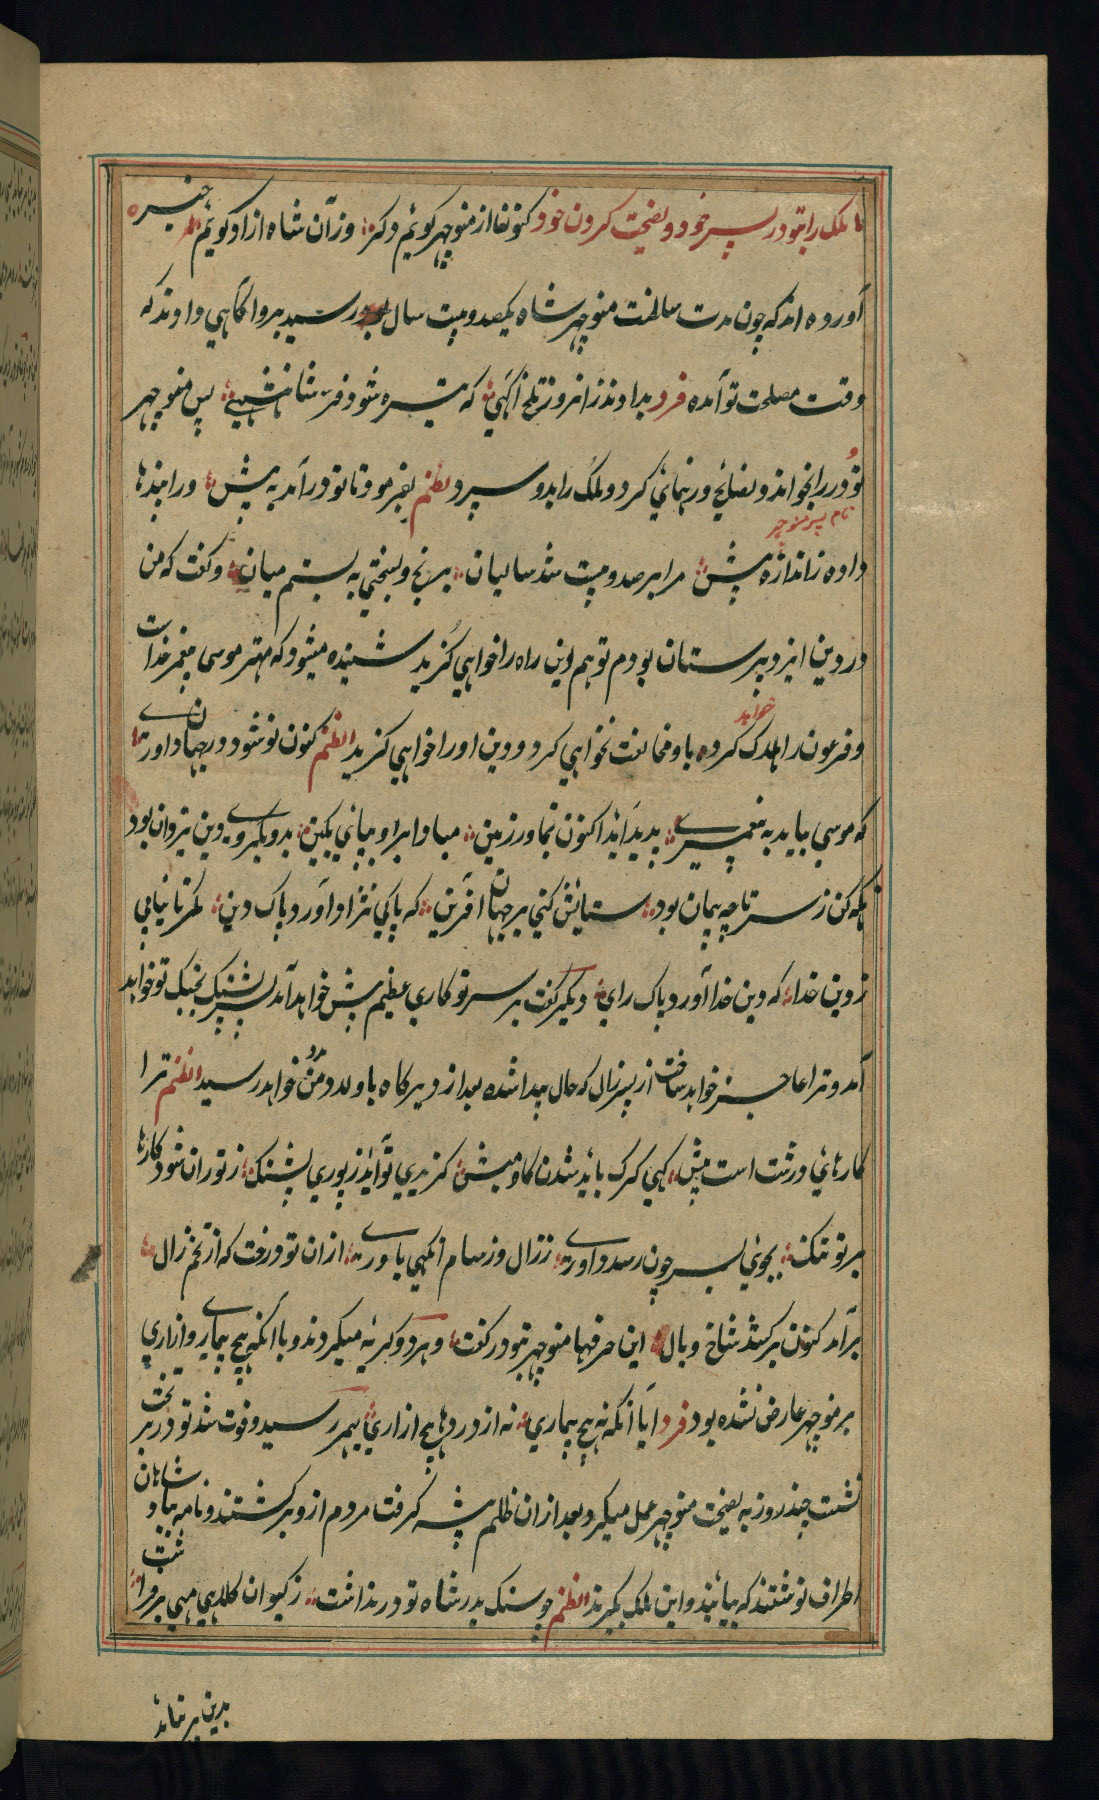 ملک را بتودر پسر خود و نصیحت کردن خود کنون تا از منوچهر کوئیم و کر وز آن شاه از او کوئیم خبر
آورده اند که چون مدت سلطنت منوچهر شاه یکصد و بیست سال رسید برو آکاهي دادند که
وقت مصلحت تو آمده فرد بدادند زان روز تلخ آکهي که تیره شود فر شاهنشهي پس منوچهر
نودر را بخواند و نصایح و رهنمائي کرد و ملک را بدو سپرد نظم بفرمود تا نودر آمد به پیش ورا پندها
نام پسر منوچهر
داده ز اندازه بیش مرا بر صد و بیست شد سالیان برنج و بسختي به بستم میان و کفت که من
در دین ایزد پرستان بودم تو هم این راه را خواهي کزید شنیده میشود که مهتر موسی پیغمبر خداست
خواهد
و فرعون را هلاک کرده باو مخالفت نخواهي کرد و دین او را خواهي کزید نظم کنون نو شود در جهان داوري
که موسي بیاید به پیغمبري پدید آید اکنون بخاور زمین مبادا بر او بپائي بکین بدو بکروي دین یزدان بود
نکه کن ز سر تا چه پیمان بود ستایش کني بر جهان آفرین که پاکي نژاد آورد پاک دین نکر تا نیابي
ز دین خداي که دین خدا آورد پاک راي دیکر کفت بر سر تو کاري عظیم پیش خواهد آمد پسر پشنک بجنک تو خواهد
آمد و ترا عاجز خواهد ساخت از پسر زال که حال پیدا شده بعد از دیرکاه باو مدد من خواهد رسید نظم ترا
کارهاي درشت است پیش کهي کرک باید شدن کاه میش کزیدي تو آید ز پوري پشنک ز توران شود کارها
بر تو تنک بجوئي پسر چون رسد داوري ز زال و ز سام آنکهي یاوري ازان تو درخت که از تخم زال
برآمد کنون برکشد شاخ و بال این حرفها منوچهر بنودر کفت و هر دو کریه میکردند و با آنکه هیچ بیماري و ازاري
بر منوچهر عارض نشده بود فرد ابا آنکه نه هیچ بیماري نه از دردها هیچ ازاري بهم رسید و فوت شد نودر بر تخت
نشست چند روز به نصیحت منوچهر عمل میکرد بعد ازان ظلم پیشه کرفت مردم ازو برکشتند و نامه بپادشاهان
اطراف نوشتند که بیایند و این ملک بکیرند نظم چو سوک پدر شاه نودر بداشت ز کیوان کلاه مهي بر فراشت
بدین بر نماند